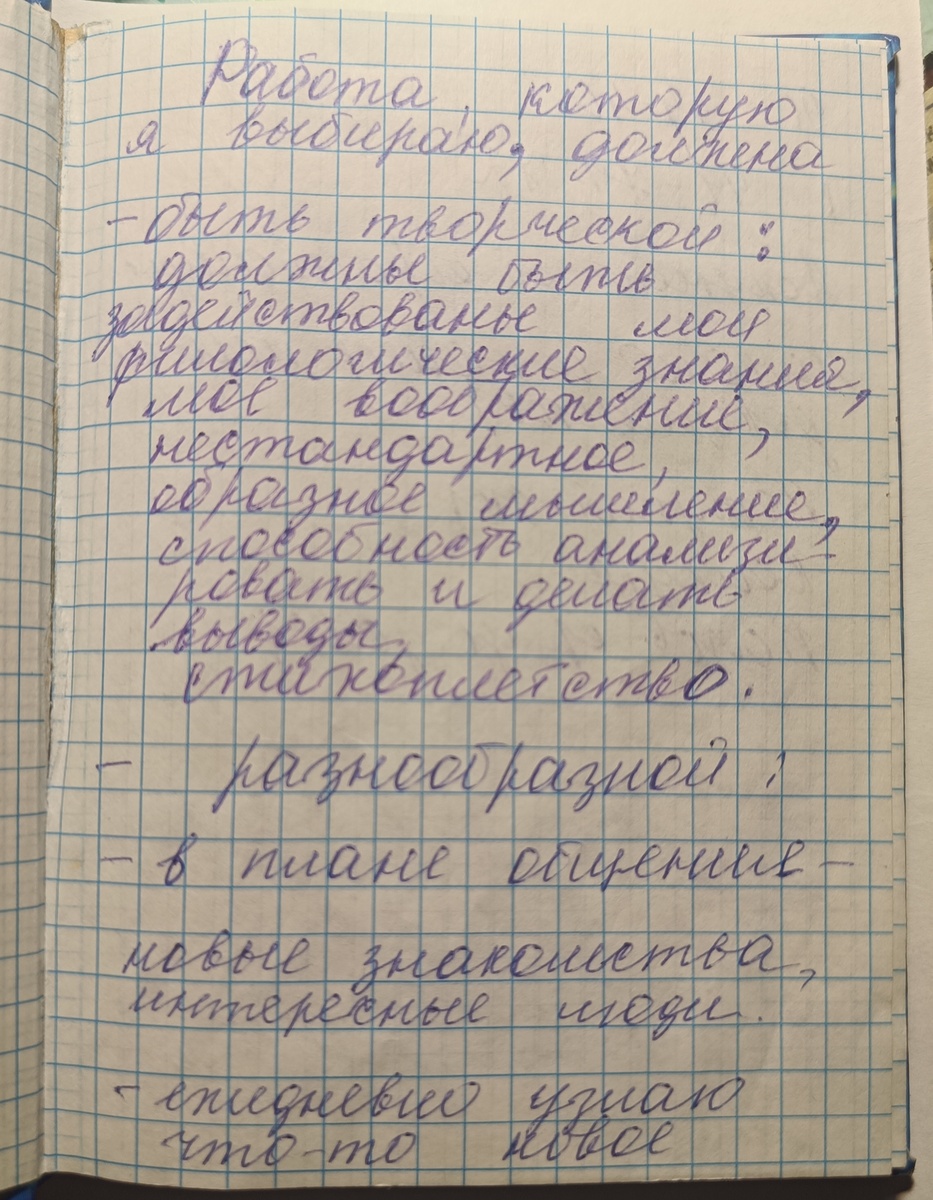 Работа, которую
я выбираю, должна
- быть творческой:
должны быть
задействованы мои
филологические знания,
мое воображение,
нестандартное,
образное мышление,
способность анализи-
ровать и делать
выводы,
стихоплетство.
- разнообразной:
- в плане общения -
новые знакомства,
интересные люди.
- ежедневно узнаю
что-то новое